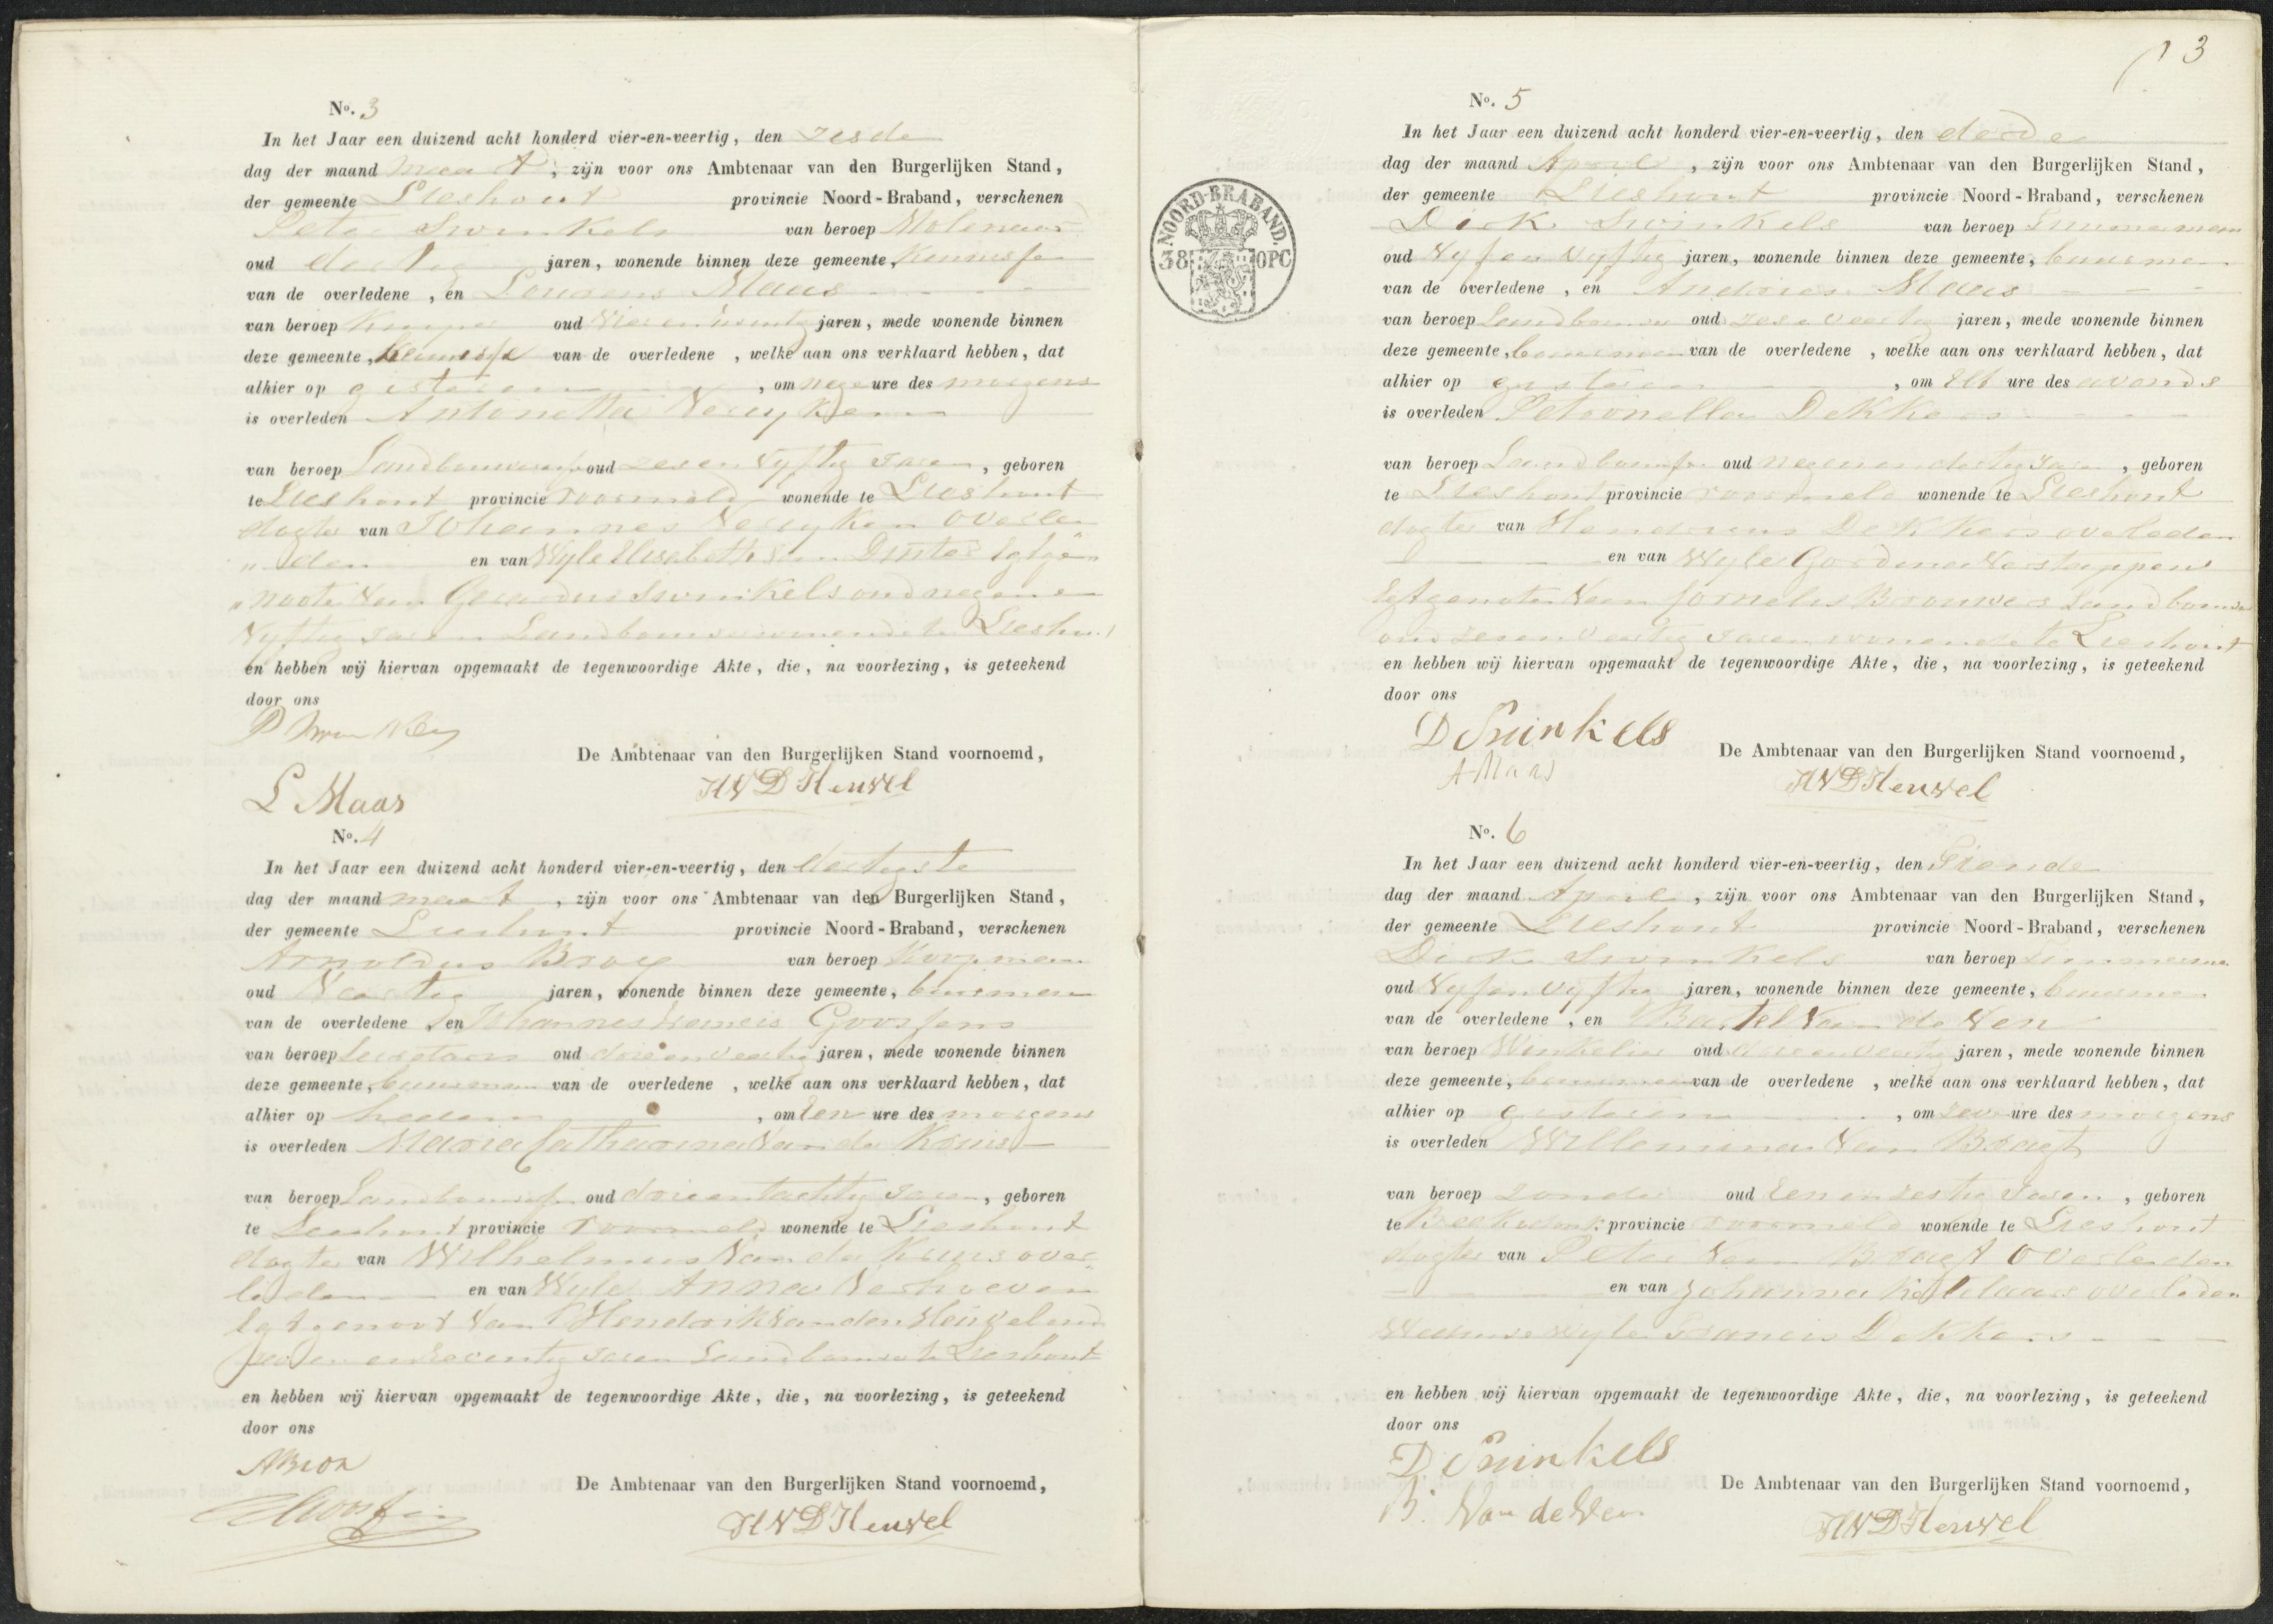 No. 3
In het Jaar een duizend acht honderd vier-en-veertig, den zesde
dag der maand maart, zijn voor ons Ambtenaar van den Burgerlijken Stand,
der gemeente Lieshout provincie Noord-Braband, verschenen
Peter Swinkels van beroep Molenaar
oud dertig jaren, wonende binnen deze gemeente, kennisse
van de overledene, en Lourens Maas
van beroep oud jaren, mede wonende binnen
deze gemeente, kennisse van de overledene, welke aan ons verklaard hebben, dat
alhier op gisteren, om negen ure des morgens
is overleden Antonetta Vereyken
van beroep Landbouwersse oud zesenvyftig Jaren, geboren
te Lieshout provincie voormeld wonende te Lieshout
dogter van Johannes Vereyken overle
" den en van Wyle Elisabeth van Dinter Egtge"
" noote van Gerardus Swinkels oud negenen
vyftig Jaren Landbouwer wonende te Lieshout
en hebben wij hiervan opgemaakt de tegenwoordige Akte, die, na voorlezing, is geteekend
door ons
P Swinkels
De Ambtenaar van den Burgerlijken Stand voornoemd,
HVDHeuvel
L Maas
No. 4
In het Jaar een duizend acht honderd vier-en-veertig, den dertigste
dag der maand maart, zijn voor ons Ambtenaar van den Burgerlijken Stand,
der gemeente Lieshout provincie Noord-Braband, verschenen
Arnoldus Brox van beroep Koopman
oud Veertig jaren, wonende binnen deze gemeente, buurman
van de overledene, en Johannes Francis Goossens
van beroep Secretaris oud drieenveertig jaren, mede wonende binnen
deze gemeente, buurman van de overledene, welke aan ons verklaard hebben, dat
alhier op heden, om een ure des morgens
is overleden Maria Catharina van de Kruis
van beroep Landbouwersse oud drieentachtig Jaren, geboren
te Lieshout provincie voormeld wonende te Lieshout
dogter van Wilhelmus van de Kruis over
leden en van Wyle Anna Verhoeven
Egtgenoot van Hendrik van den Heuvel oud
enzeventig Jaren Landbouwer te Lieshout
en hebben wij hiervan opgemaakt de tegenwoordige Akte, die, na voorlezing, is geteekend
door ons
ABrox
De Ambtenaar van den Burgerlijken Stand voornoemd,
Goossens
HVDHeuvel
3
NOORD-BRABAND.
38 OPC
No. 5
In het Jaar een duizend acht honderd vier-en-veertig, den derde
dag der maand April, zijn voor ons Ambtenaar van den Burgerlijken Stand,
der gemeente Lieshout provincie Noord-Braband, verschenen
Dirk Swinkels van beroep Timmerman
oud vyfenvyftig jaren, wonende binnen deze gemeente, buurman
van de overledene, en Andries Maas
van beroep Landbouwer oud zesenveertig jaren, mede wonende binnen
deze gemeente, buurman van de overledene, welke aan ons verklaard hebben, dat
alhier op gisteren, om Elf ure des avonds
is overleden Petronella Dekkers
van beroep Landbouwersse oud negenendertig Jaren, geboren
te Lieshout provincie voormeld wonende te Lieshout
dogter van Hendricus Dekkers overleden
en van Wyle Gordina Verstappen
Egtgenoten van Cornelis Brouwers Landbouwer
oud zesenveertig Jaren wonende te Lieshout
en hebben wij hiervan opgemaakt de tegenwoordige Akte, die, na voorlezing, is geteekend
door ons
D Swinkels
De Ambtenaar van den Burgerlijken Stand voornoemd,
A Maas
HVDHeuvel
No. 6
In het Jaar een duizend acht honderd vier-en-veertig, den Tiende
dag der maand April, zijn voor ons Ambtenaar van den Burgerlijken Stand,
der gemeente Lieshout provincie Noord-Braband, verschenen
Dirk Swinkels van beroep Timmerman
oud vyfenvyftig jaren, wonende binnen deze gemeente, buurman
van de overledene, en Bartel van de Ven
van beroep Winkelier oud drieenveertig jaren, mede wonende binnen
deze gemeente, buurman van de overledene, welke aan ons verklaard hebben, dat
alhier op gisteren, om zeven ure des morgens
is overleden Willemina van Bragt
van beroep zonder oud Eenenzestig Jaren, geboren
te Beek en donk provincie voormeld wonende te Lieshout
dogter van Peter van Bragt overleden
en van Johanna overleden
Weduwe wyle Francis Dekkers
en hebben wij hiervan opgemaakt de tegenwoordige Akte, die, na voorlezing, is geteekend
door ons
D Swinkels
De Ambtenaar van den Burgerlijken Stand voornoemd,
B. Van de Ven
HVDHeuvel